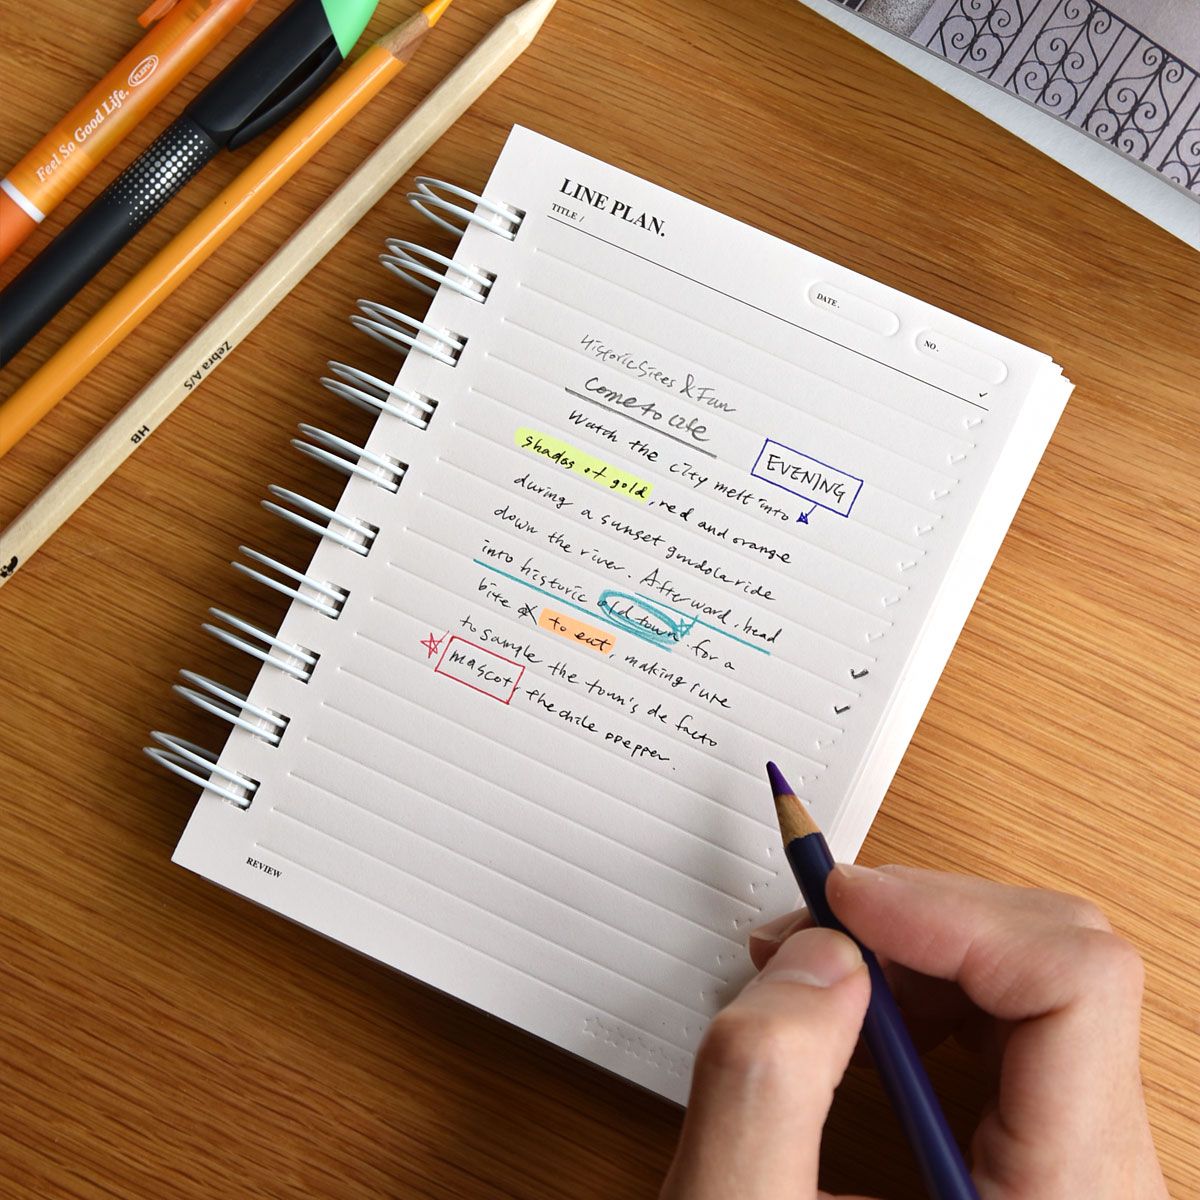 Feel So Good Life.
PLEPIC
Zebra A/S
HB
LINE PLAN.
TITLE /
DATE.
NO.
Historic Sites & Fun
Come to
Watch the city melt into
EVENING
shades of gold, red and orange
during a sunset gondola ride
down the river. Afterword, head
into historic old town for a
bite to eat, making sure
to sample the town's de facto
mascot, the chile ppepper.
REVIEW